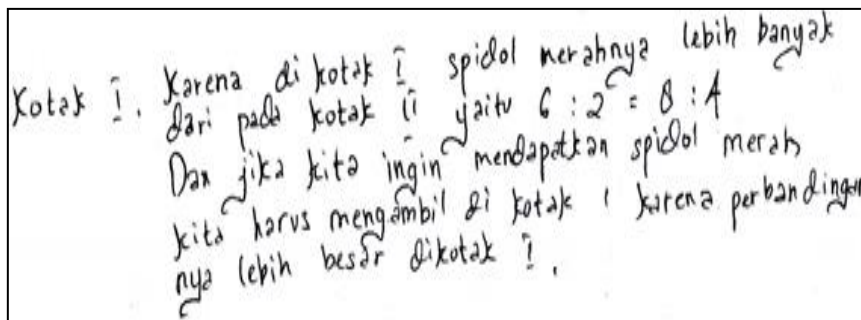 Kotak I. Karena di kotak I spidol merahnya lebih banyak
dari pada kotak II yaitu 6 : 2 = 8 : 4
Dan jika kita ingin mendapatkan spidol merah
kita harus mengambil di kotak I karena perbandingan
nya lebih besar dikotak I.